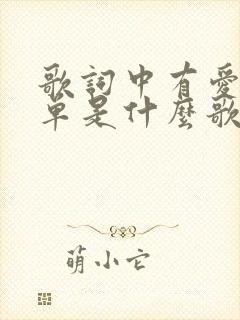 歌詞中有愛
单是什麼歌
萌小它